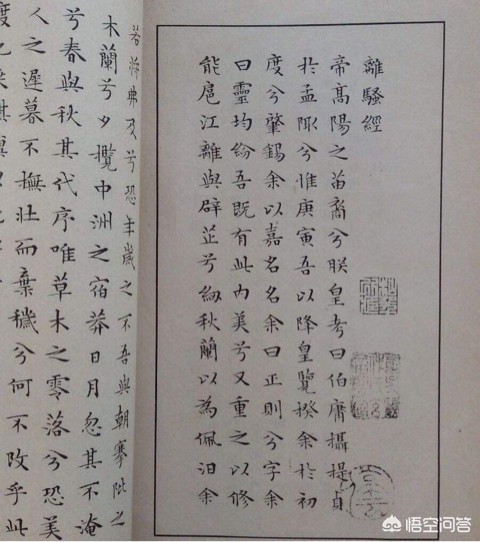 離騷經
帝高陽之苗裔兮朕皇考曰伯庸攝提貞
於孟陬兮惟庚寅吾以降皇覽揆余於初
度兮肇錫余以嘉名名余曰正則兮字余
曰靈均紛吾既有此內美兮又重之以修
能扈江離與辟芷兮紉秋蘭以為佩汨余
若將弗及兮恐年歲之不吾與朝搴阰之
木蘭兮夕攬中洲之宿莽日月忽其不淹
兮春與秋其代序唯草木之零落兮恐美
人之遲暮不撫壯而棄穢兮何不改乎此
悟空问答